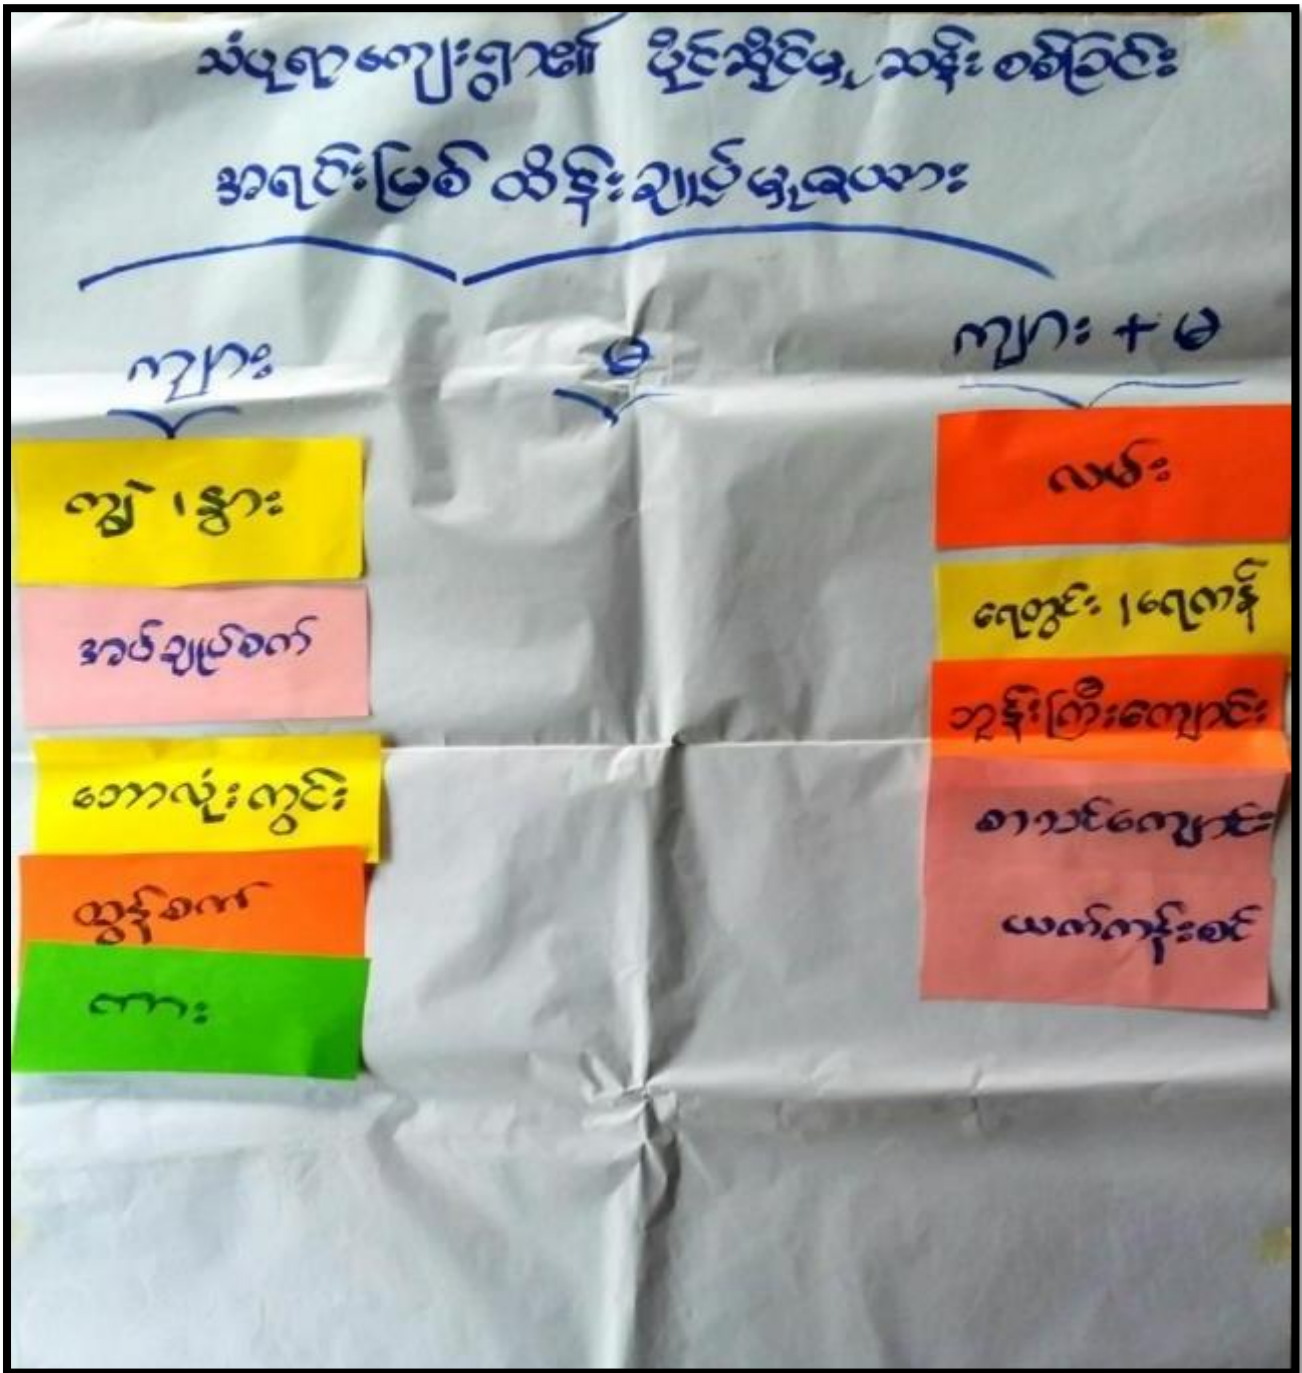 သံပုရာကျေးရွာ၏ ပိုင်ဆိုင်မှု ဆန်းစစ်ခြင်း
အရင်းမြစ် ထိန်းချုပ်မှုဇယား
ကျား
မ
ကျား + မ
ကျွဲ ၊ နွား
အပ်ချုပ်စက်
ဘောလုံးကွင်း
ထွန်စက်
ကား
လမ်း
ရေတွင်း ၊ ရေကန်
ဘုန်းကြီးကျောင်း
စာသင်ကျောင်း
ယက်ကန်းစင်